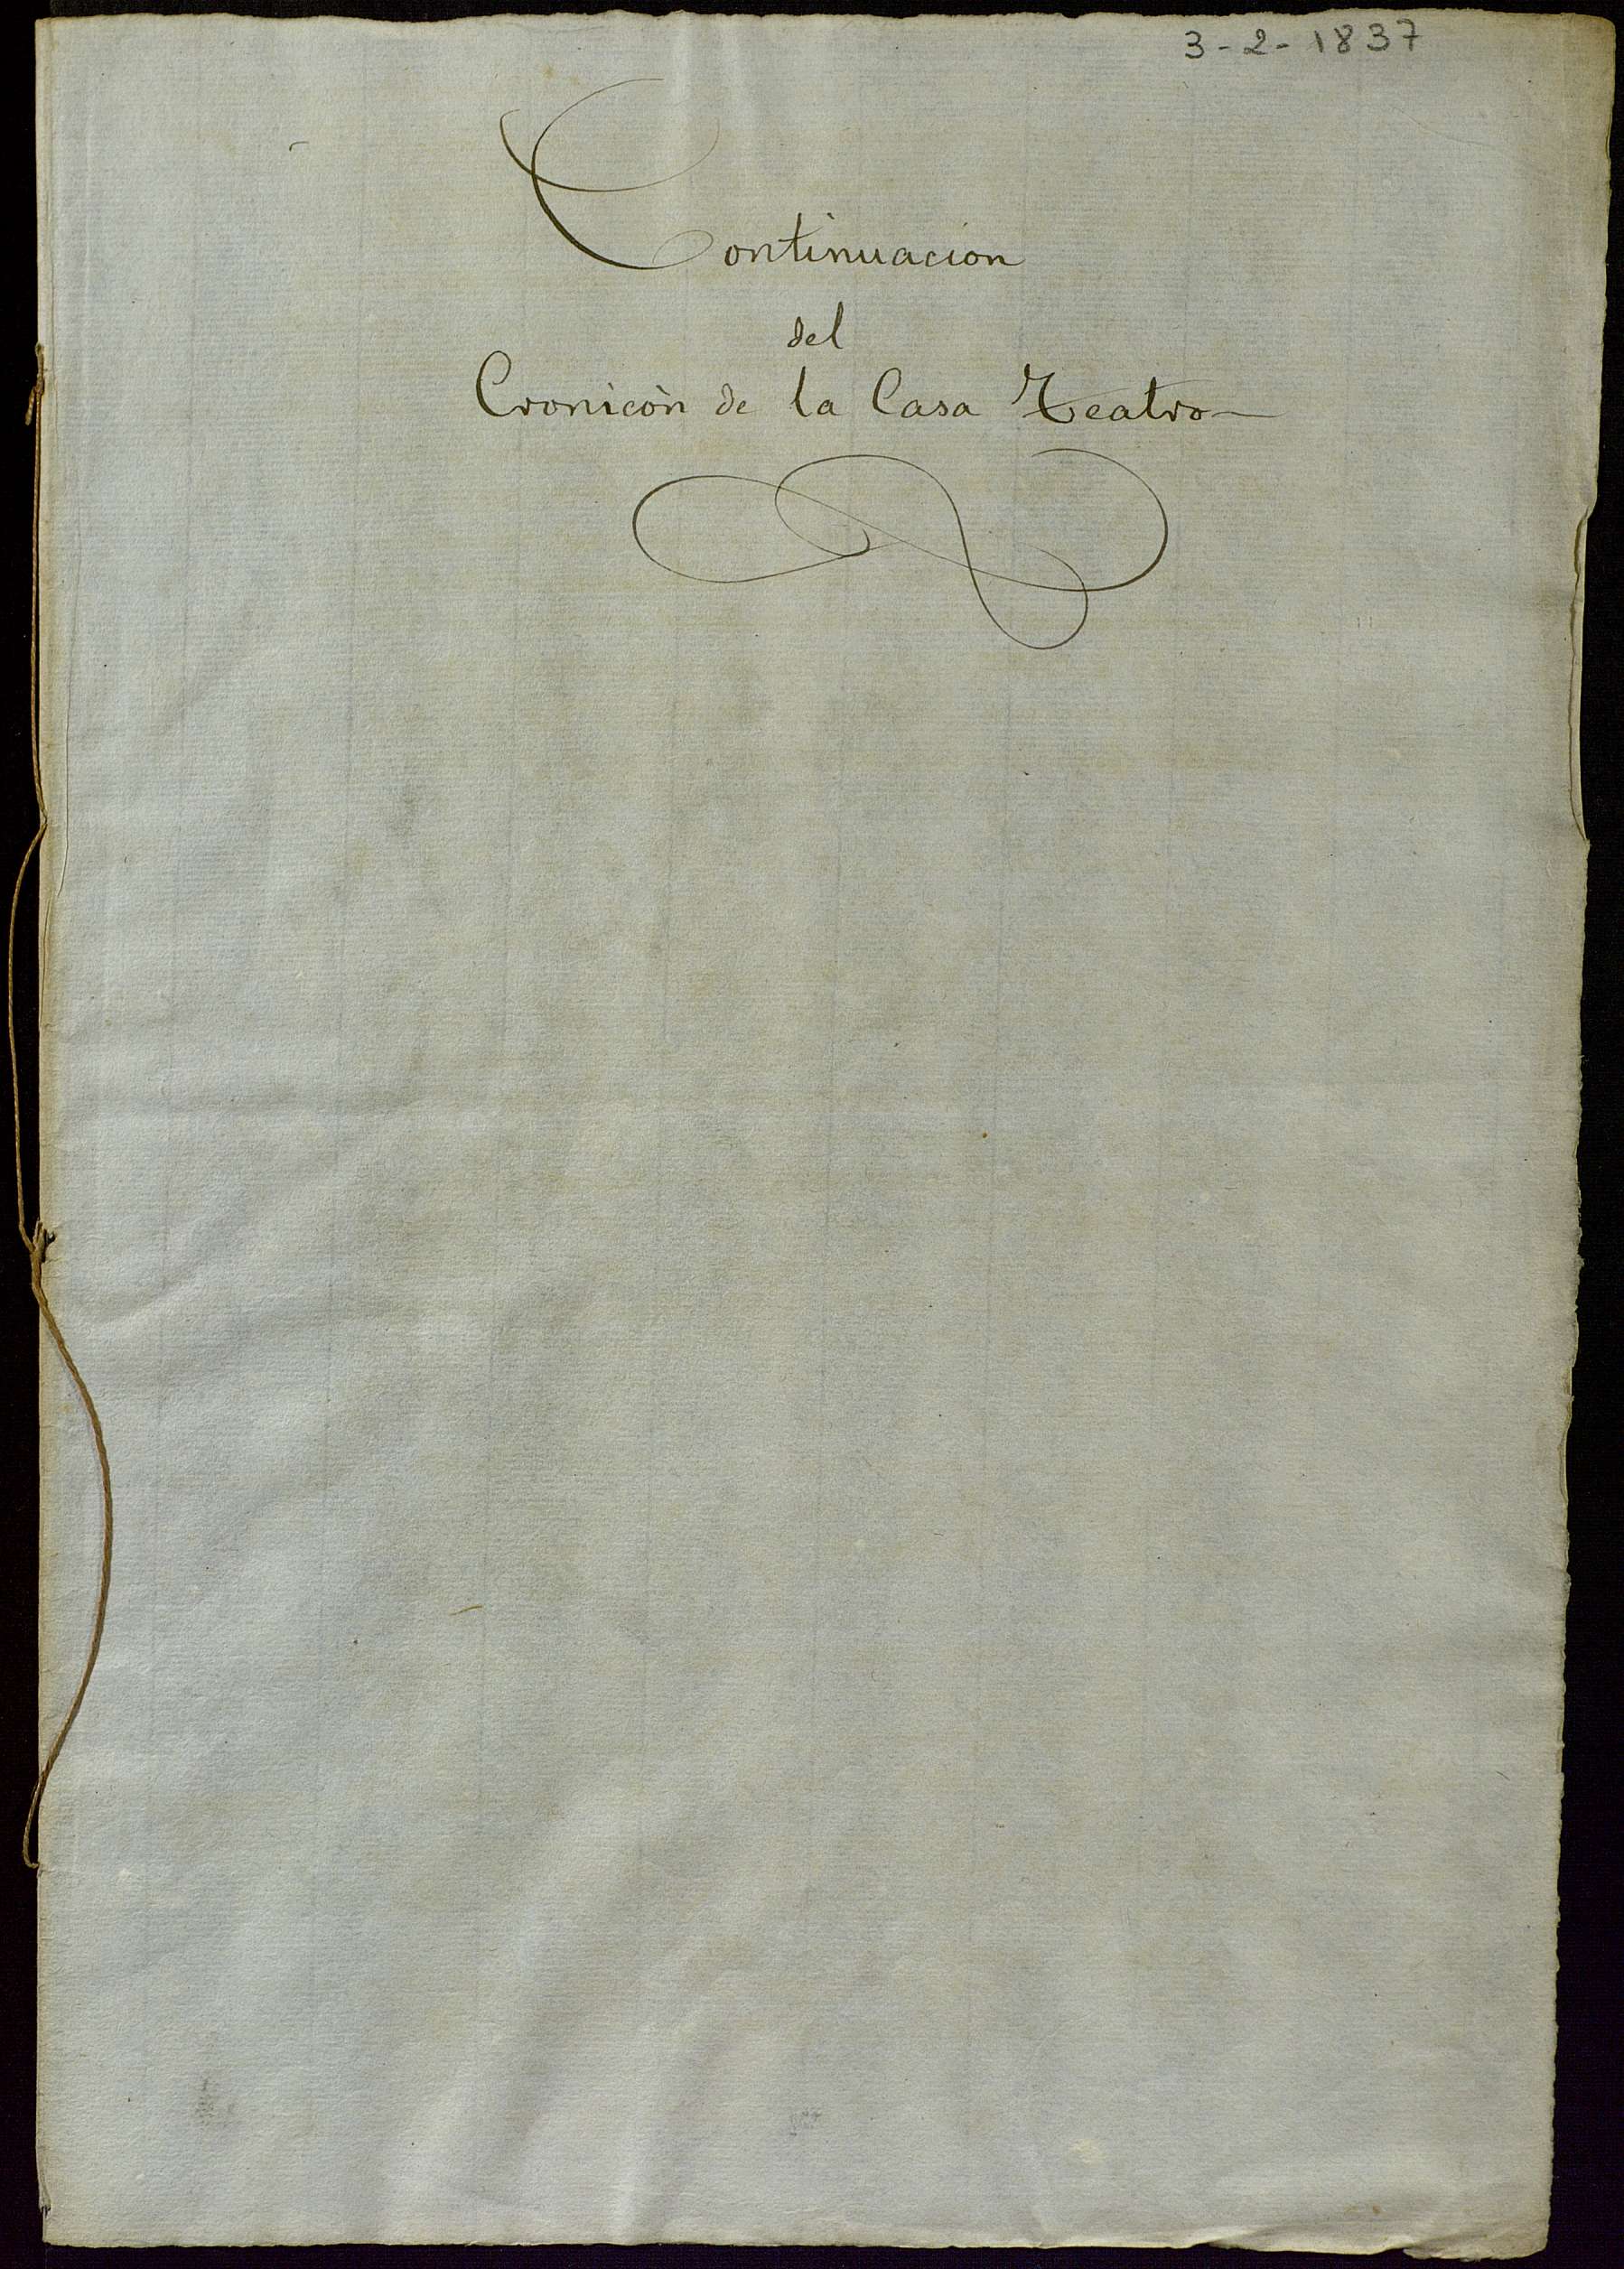 3-2-1837
Continuacion
del
Cronicòn de la Casa Teatro